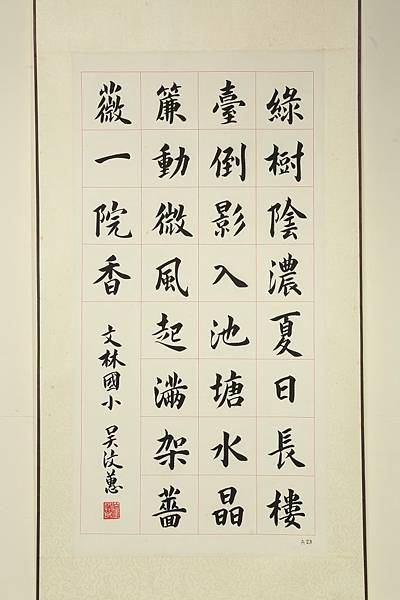 綠樹陰濃夏日長樓
臺倒影入池塘水晶
簾動微風起滿架薔
薇一院香
文林國小 吳汶蕙